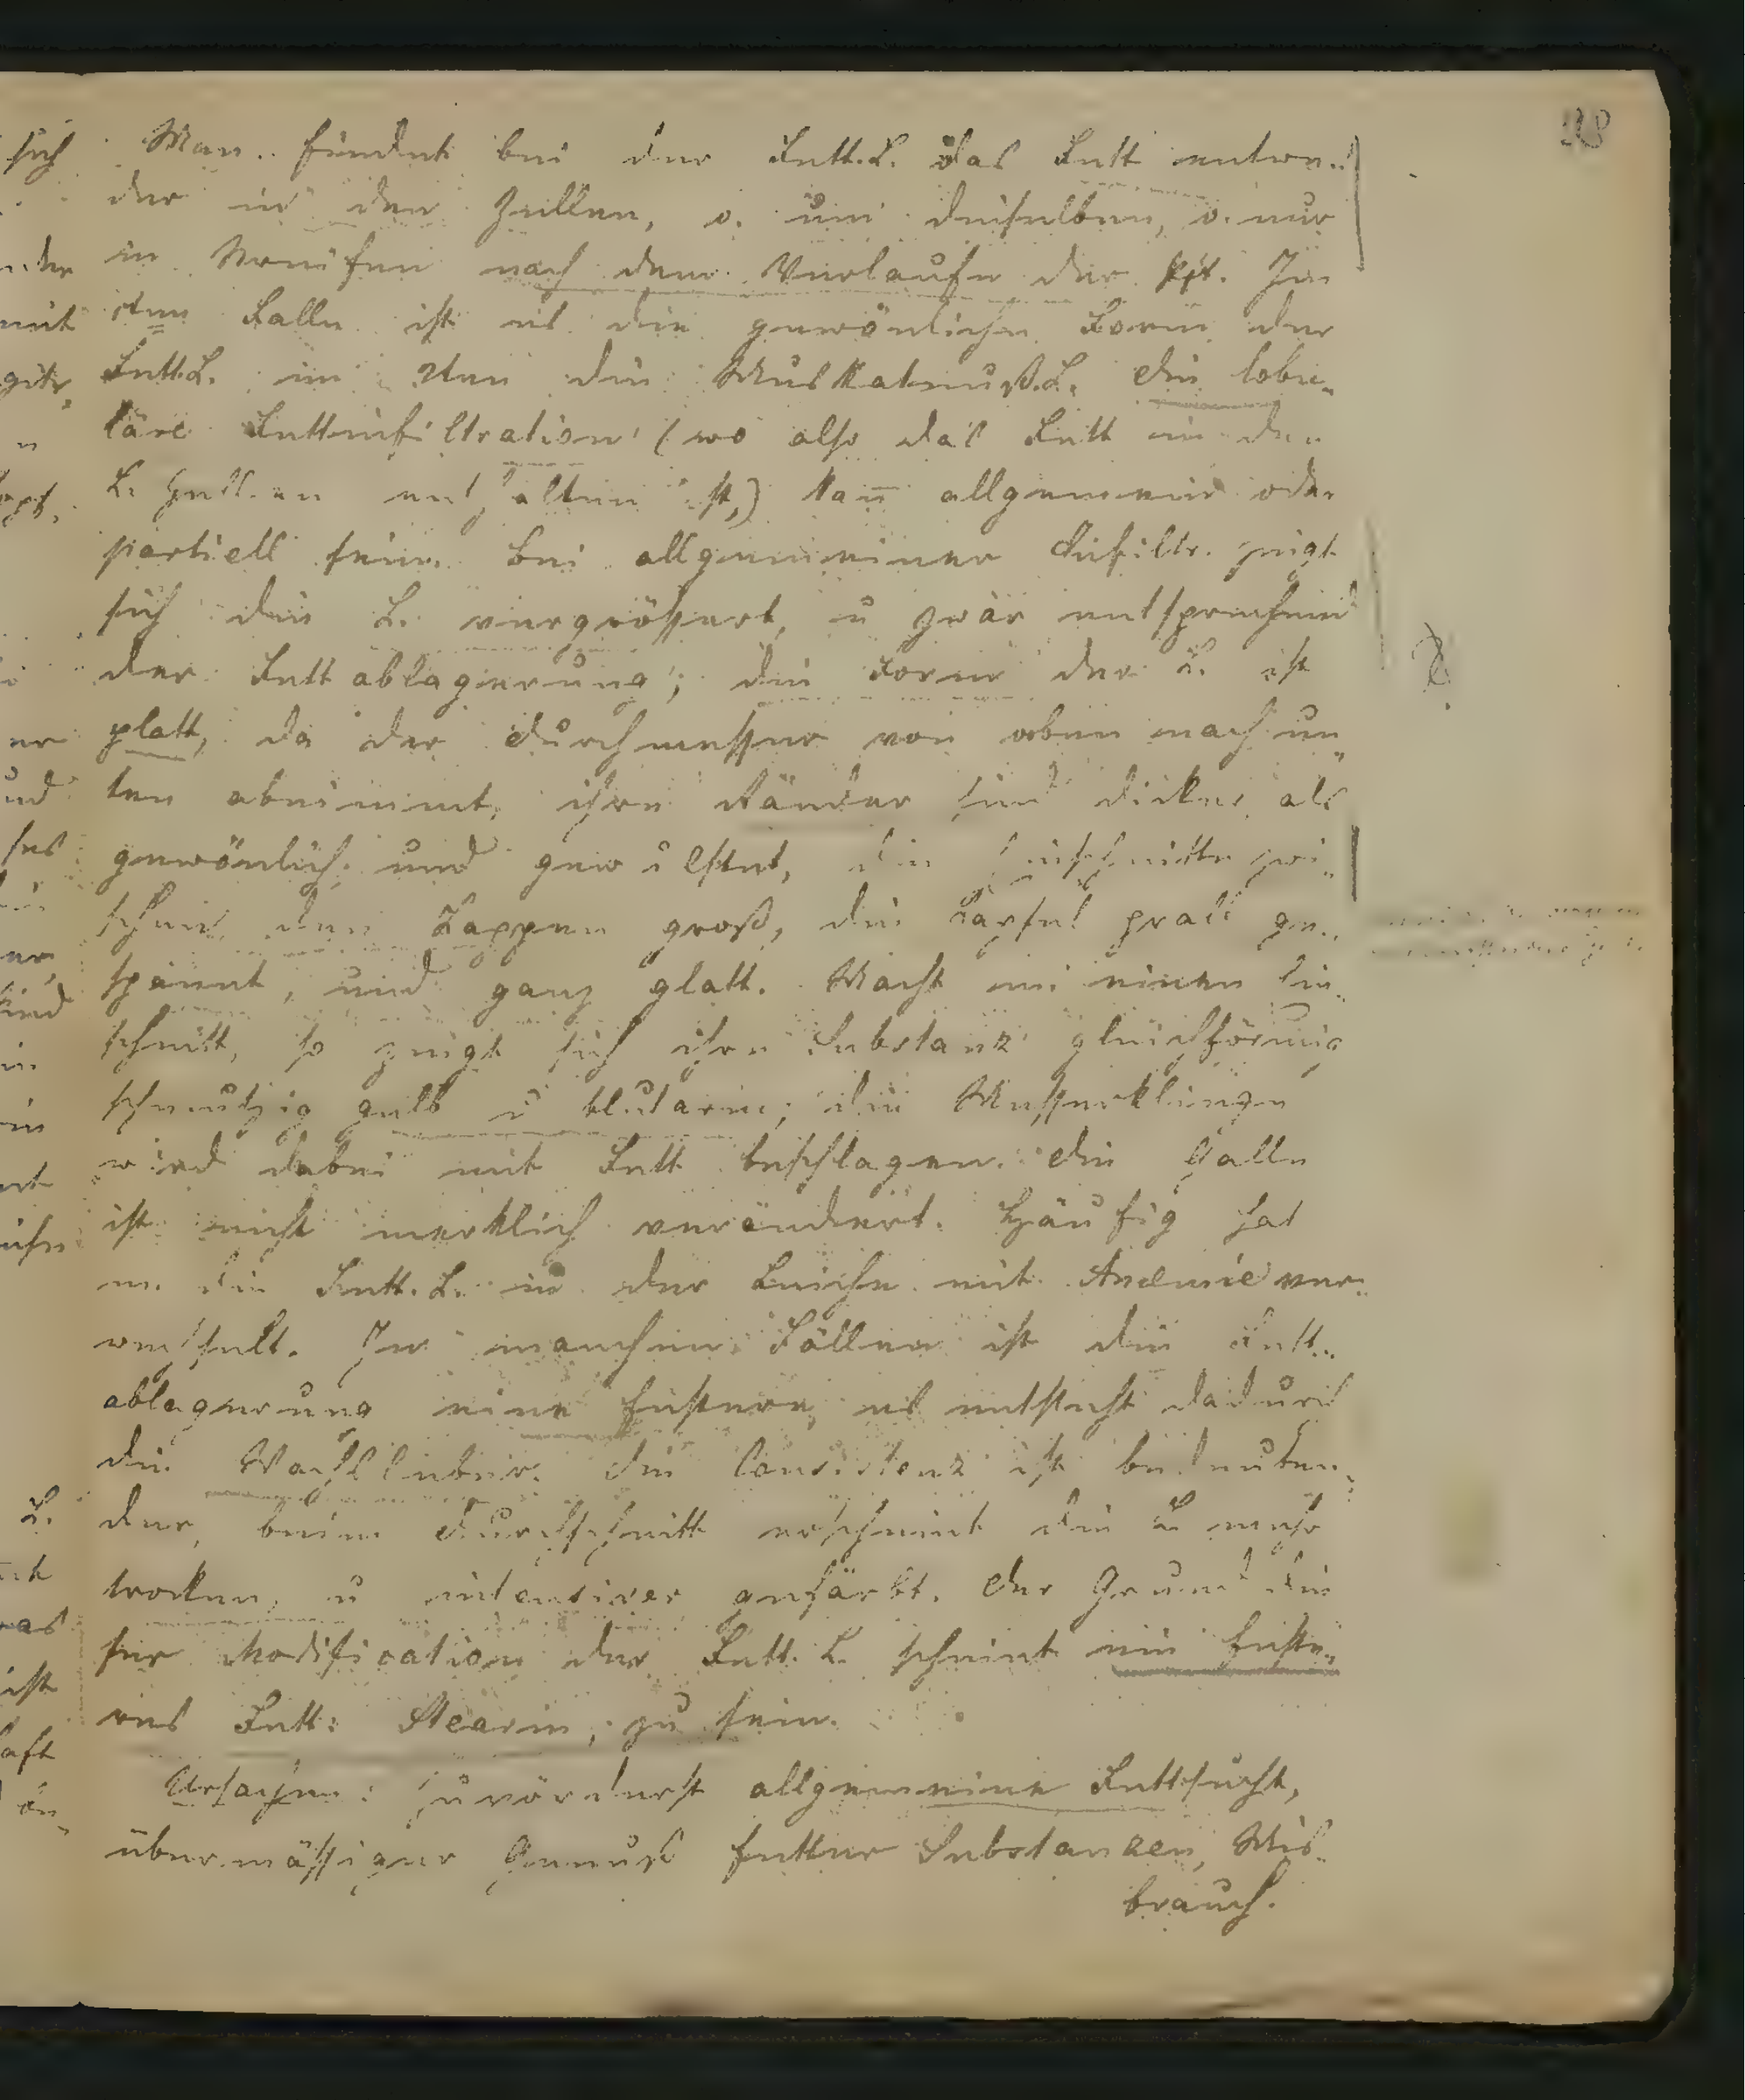 28
Man findet bei der Fett.L. das Fett entwe-
der in den Zellen, o. um dieselben, o. nur
in Streifen nach dem Verlaufe der
1ten Falle ist es die gewönliche Form der
Fett.L. im 2ten die Muskatnuß.L. Die lobu-
läre Fettinfiltration (wo also das Fett in den
L. Zellen enthalten ist,) kan̄ allgemein oder
partiell sein. Bei allgemeiner Infiltr. zeigt
sich die L. vergrössert, u zwar entsprechend
der Fettablagerung; die Form der L. ist
platt, da der Durchmesser von oben nach un-
ten abnimmt, ihre Ränder sind dicker als
gewönlich und gewulstet, die Einschnitte zwi-
schen den Lappen groß, die Kapsel prall ge-
spannt, und ganz glatt. Macht m. einen Ein-
schnitt, so zeigt sich ihre Substanz gleichförmig
schmutzig gelb u blutarm; die Messerklinge
wird dabei mit Fett beschlagen. Die Galle
ist nicht merklich verändert. Häufig hat
m. die Fett.L. in der Leiche mit Anaemie ver-
wechselt. In manchen Fällen ist die Fett-
ablagerung eine festere, es entsteht dadurch
die Wachsleber. Die Consistenz ist bedeuten-
der, beim Durchschnitt erscheint die L mehr
trocken, u intensiver gefärbt. Der Grund die-
ser Modification der Fett.L. scheint ein feste-
res Fett: Stearin, zu sein.
Ursachen: Zuvörderst allgemeine Fettsucht,
übermässiger Genuß fetter Substanzen, Mis-
brauch.